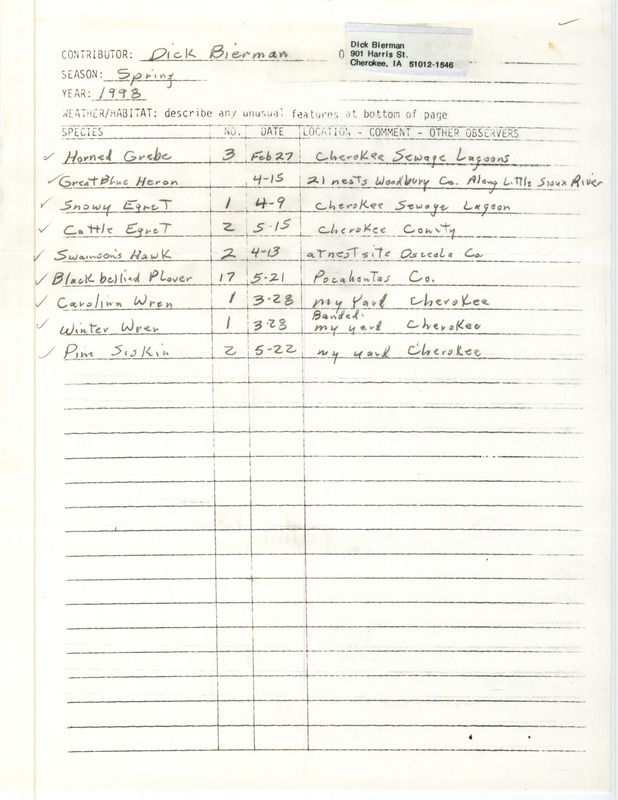 CONTRIBUTOR: Dick Bierman O
Dick Bierman
901 Harris St.
Cherokee, IA 51012-1546
SEASON: Spring
YEAR: 1998
WEATHER/HABITAT: describe any unusual features at bottom of page
SPECIES NO. DATE LOCATION - COMMENT - OTHER OBSERVERS
✓ Horned Grebe 3 Feb 27 Cherokee Sewage Lagoons
✓ Great Blue Heron 4-15 21 nests Woodbury Co. Along Little Sioux River
✓ Snowy Egret 1 4-9 Cherokee Sewage Lagoon
✓ Cattle Egret 2 5-15 Cherokee County
✓ Swainson's Hawk 2 4-13 at nest site Osceola Co.
✓ Black bellied Plover 17 5-21 Pocahontas Co.
✓ Carolina Wren 1 3-28 my Yard Cherokee
Banded.
✓ Winter Wren 1 3-28 my yard Cherokee
✓ Pine Siskin 2 5-22 my yard Cherokee